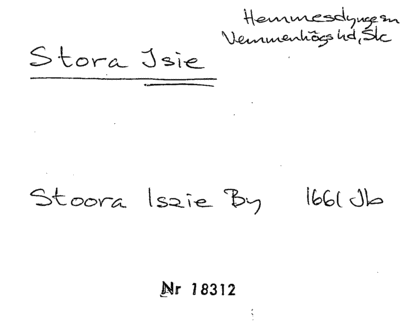 Hemmesdynge sn
Vemmenhögs hd, Sk
Stora Isie
Stoora Iszie By 1661 Jb
Nr 18312